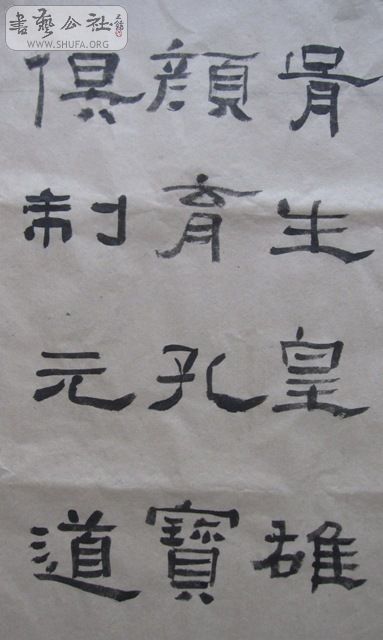 書藝公社
WWW.SHUFA.ORG
胥生皇雄
顏育孔寶
俱制元道